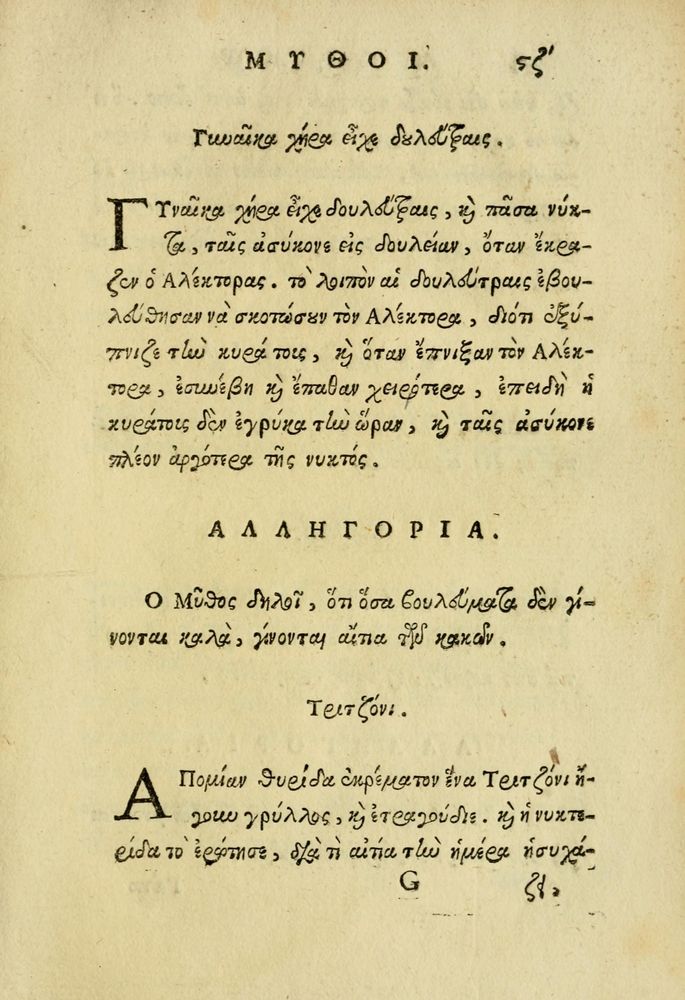 ΜΥΘΟΙ. ϟζʹ
Γυναῖκα χήρα εἶχε δουλεύτραις.
ΓΥναῖκα χήρα εἶχε δουλεύτραις, καὶ πᾶσα νύκ-
τα, ταῖς ἀσύκονε εἰς δουλείαν, ὅταν ἔκρα-
ζεν ὁ Αλέκτορας. τὸ λοιπὸν αἱ δουλεύτραις ἐβου-
λεύθησαν νὰ σκοτώσουν τὸν Αλέκτορα, διότι ἐξύ-
πνιζε τὴν κυρά τοις, καὶ ὅταν ἔπνιξαν τὸν Αλέκ-
τορα, ἐσυνέβη καὶ ἔπαθαν χειρότερα, ἐπειδὴ ἡ
κυράτοις δὲν ἐγρύκα τὴν ὥραν, καὶ ταῖς ἀσύκονε
πλέον ἀργότερα τῆς νυκτός.
ΑΛΛΗΓΟΡΙΑ.
Ο Μῦθος δηλοῖ, ὅτι ὅσα βουλεύματα δὲν γί-
νονται καλὰ, γίνονται αἴτια τῶν κακῶν.
Τριτζόνι.
ΑΠομίαν θυρίδα ἐκρέματον ἕνα Τριτζόνι ἤ-
γουν γρύλλος, καὶ ἐτραγούδιε. καὶ ἡ νυκτε-
ρίδα τὸ ἐρώτησε, διὰ τὶ αἰτία τὴν ἡμέρα ἡσυχά-
G ζει,